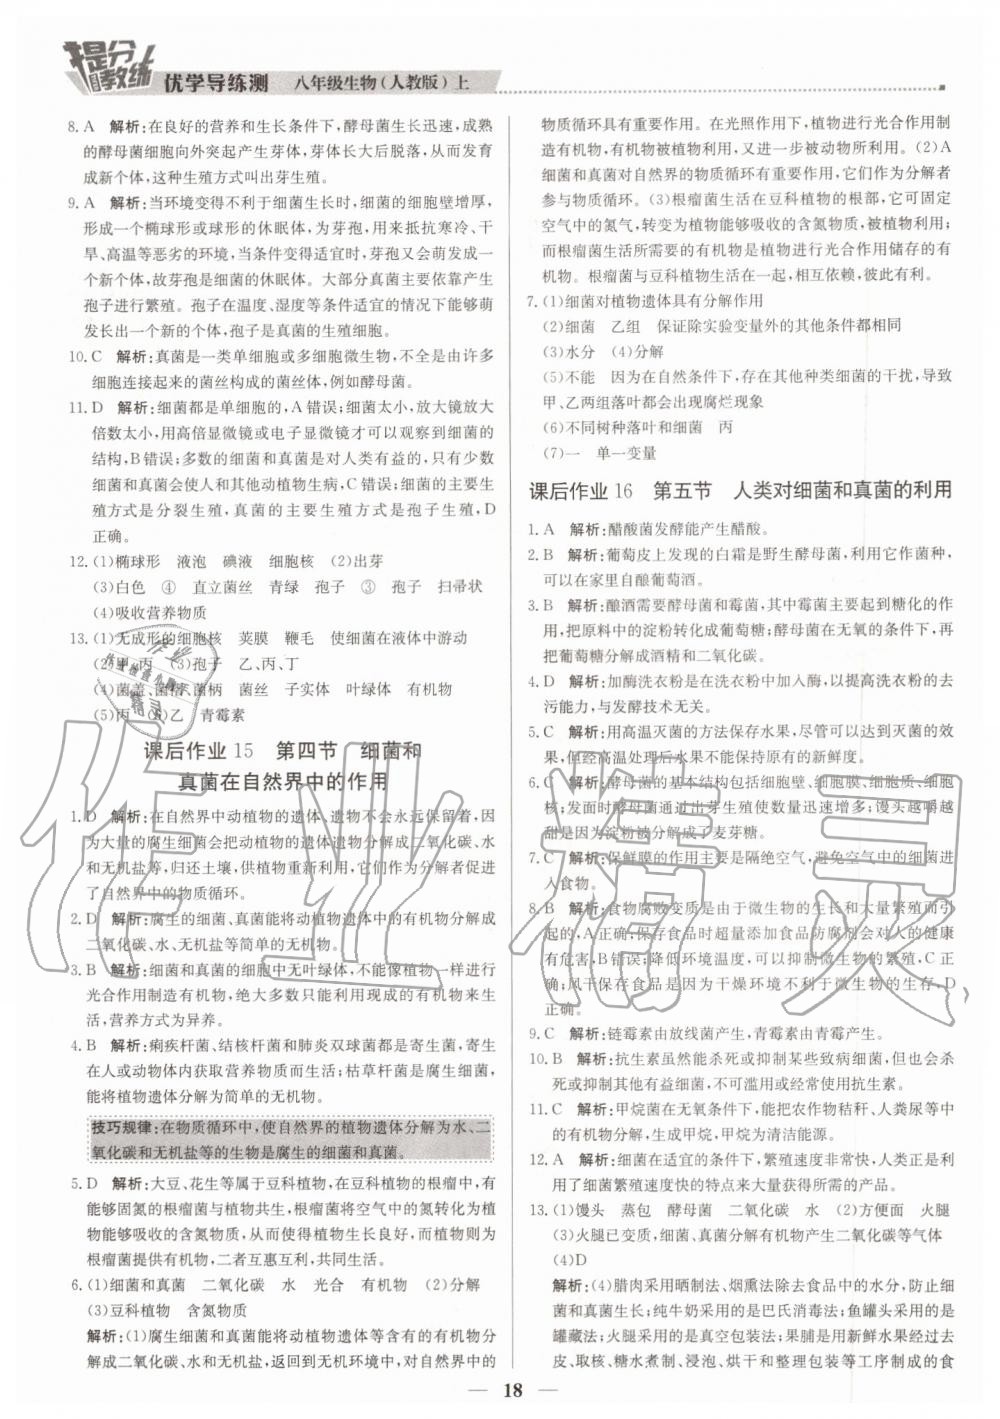 提分
教练
优学导练测 八年级生物(人教版)上
8. A 解析:在良好的营养和生长条件下,酵母菌生长迅速,成熟
的酵母菌细胞向外突起产生芽体,芽体长大后脱落,从而发育
成新个体,这种生殖方式叫出芽生殖。
9. A 解析:当环境变得不利于细菌生长时,细菌的细胞壁增厚,
形成一个椭球形或球形的休眠体,为芽孢,用来抵抗寒冷、干
旱、高温等恶劣的环境,当条件变得适宜时,芽孢又会萌发成一
个新个体,故芽孢是细菌的休眠体。大部分真菌主要依靠产生
孢子进行繁殖。孢子在温度、湿度等条件适宜的情况下能够萌
发长出一个新的个体,孢子是真菌的生殖细胞。
10. C 解析:真菌是一类单细胞或多细胞微生物,不全是由许多
细胞连接起来的菌丝构成的菌丝体,例如酵母菌。
11. D 解析:细菌都是单细胞的,A错误;细菌太小,放大镜放大
倍数太小,用高倍显微镜或电子显微镜才可以观察到细菌的
结构,B错误;多数的细菌和真菌是对人类有益的,只有少数
细菌和真菌会使人和其他动植物生病,C错误;细菌的主要生
殖方式是分裂生殖,真菌的主要生殖方式是孢子生殖,D
正确。
12. (1)椭球形 液泡 碘液 细胞核 (2)出芽
(3)白色 ④ 直立菌丝 青绿 孢子 ③ 孢子 扫帚状
(4)吸收营养物质
13. (1)无成形的细胞核 荚膜 鞭毛 使细菌在液体中游动
(2)甲 丙 (3)孢子 乙、丙、丁
(4)菌盖、菌褶、菌柄 菌丝 子实体 叶绿体 有机物
(5)丙 (6)乙 青霉素
课后作业 15 第四节 细菌和
真菌在自然界中的作用
1. D 解析:在自然界中动植物的遗体、遗物不会永远保留着,因
为大量的腐生细菌会把动植物的遗体遗物分解成二氧化碳、水
和无机盐等,归还土壤,供植物重新利用,它们作为分解者促进
了自然界中的物质循环。
2. D 解析:腐生的细菌、真菌能将动植物遗体中的有机物分解成
二氧化碳、水、无机盐等简单的无机物。
3. B 解析:细菌和真菌的细胞中无叶绿体,不能像植物一样进行
光合作用制造有机物,绝大多数只能利用现成的有机物来生
活,营养方式为异养。
4. B 解析:痢疾杆菌、结核杆菌和肺炎双球菌都是寄生菌,寄生
在人或动物体内获取营养物质而生活;枯草杆菌是腐生细菌,
能将植物遗体分解为简单的无机物。
技巧规律:在物质循环中,使自然界的植物遗体分解为水、二
氧化碳和无机盐等的生物是腐生的细菌和真菌。
5. D 解析:大豆、花生等属于豆科植物,在豆科植物的根瘤中,有
能够固氮的根瘤菌与植物共生,根瘤菌将空气中的氮转化为植
物能够吸收的含氮物质,使植物生长良好,而植物则为
根瘤菌提供有机物,二者互惠互利,共同生活。
6. (1)细菌和真菌 二氧化碳 水 光合 有机物 (2)分解
(3)豆科植物 含氮物质
解析:(1)腐生细菌和真菌能将动植物遗体等含有的有机物分
解成二氧化碳、水和无机盐,返回到无机环境中,对自然界中的
物质循环具有重要作用。在光照作用下,植物进行光合作用制
造有机物,有机物被植物利用,又进一步被动物所利用。(2)A
细菌和真菌对自然界的物质循环有重要作用,它们作为分解者
参与物质循环。(3)根瘤菌在豆科植物的根部,它可固定
空气中的氮气,转变为植物能够吸收的含氮物质,被植物利用;
而根瘤菌生活所需要的有机物是植物进行光合作用储存的有
机物。根瘤菌与豆科植物生活在一起,相互依赖,彼此有利。
7. (1)细菌对植物遗体具有分解作用
(2)细菌 乙组 保证除实验变量外的其他条件都相同
(3)水分 (4)分解
(5)不能 因为在自然条件下,存在其他种类细菌的干扰,导致
甲、乙两组落叶都会出现腐烂现象
(6)不同树种落叶和细菌 丙
(7)一 单一变量
课后作业 16 第五节 人类对细菌和真菌的利用
1. A 解析:醋酸菌发酵能产生醋酸。
2. B 解析:葡萄皮上发现的白霜是野生酵母菌,利用它作菌种,
可以在家里自酿葡萄酒。
3. B 解析:酿酒需要酵母菌和霉菌,其中霉菌主要起到糖化的作
用,把原料中的淀粉转化成葡萄糖;酵母菌在无氧的条件下,再
把葡萄糖分解成酒精和二氧化碳。
4. D 解析:加酶洗衣粉是在洗衣粉中加入酶,以提高洗衣粉的去
污能力,与发酵技术无关。
5. C 解析:用高温灭菌的方法保存水果,尽管可以达到灭菌的效
果,但经高温处理后水果不能保持原有的新鲜度。
6. C 解析:酵母菌的基本结构包括细胞壁、细胞膜、细胞质、细胞
核;发面时酵母菌通过出芽生殖使数量迅速增多;馒头越嚼越
甜是因为淀粉被分解成了麦芽糖。
7. C 解析:保鲜膜的作用主要是隔绝空气,避免空气中的细菌进
入食物。
8. B 解析:食物腐败变质是由于微生物的生长和大量繁殖而引
起的,A正确;保存食品时超量添加食品防腐剂会对人的健康
有危害,B错误;降低环境温度,可以抑制微生物的繁殖,C正
确;风干保存食品是因为干燥环境不利于微生物的生存,D
正确。
9. C 解析:链霉素由放线菌产生,青霉素由青霉产生。
10. B 解析:抗生素虽然能杀死或抑制某些致病细菌,但也会杀
死或抑制其他有益细菌,不可滥用或长期使用抗生素。
11. C 解析:甲烷菌在无氧条件下,能把农作物秸秆、人粪尿等中
的有机物分解,生成甲烷,甲烷为清洁能源。
12. A 解析:细菌在适宜的条件下,繁殖速度非常快,人类正是利
用了细菌繁殖速度快的特点来大量获得所需的产品。
13. (1)馒头 蒸包 酵母菌 二氧化碳 水 (2)方便面 火腿
(3)火腿已变质,细菌、真菌分解有机物产生二氧化碳等气体
(4)D
解析:(4)腊肉采用晒制法、烟熏法除去食品中的水分,防止细
菌和真菌生长;纯牛奶采用的是巴氏消毒法;鱼罐头采用的是
罐藏法;火腿采用的是真空包装法;果脯是用新鲜水果经过去
皮、取核、糖水煮制、浸泡、烘干和整理包装等工序制成的食
18
作业精灵